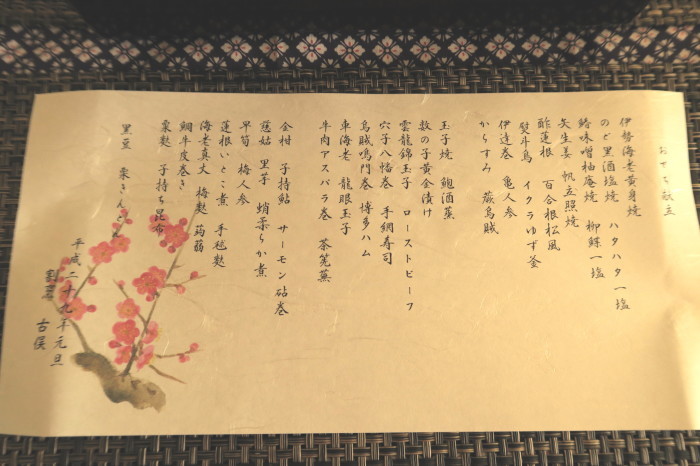 おせち献立
伊勢海老黄身焼　ハタハタ一塩
のど黒酒塩焼　柳鰈一塩
鰆味噌柚庵焼　帆立照焼
矢生姜　百合根松風
酢蓮根　イクラゆず釜
熨斗鳥　蕨烏賊
伊達巻　亀人参
からすみ
玉子焼　鮑酒蒸
数の子黄金漬け
雲龍錦玉子　ローストビーフ
穴子八幡巻　手綱寿司
烏賊鳴門巻　博多ハム
車海老　龍眼玉子
牛肉アスパラ巻　茶筅蕪
金柑　子持鮎　サーモン砧巻
慈姑　里芋　蛸柔らか煮
早筍　梅人参
蓮根いとこ煮　手毬麩
海老真丈　梅麩　蒟蒻
鯛牛皮巻き
粟麩　子持ち昆布
黒豆　栗きんとん
平成二十九年元旦
割烹　古俣